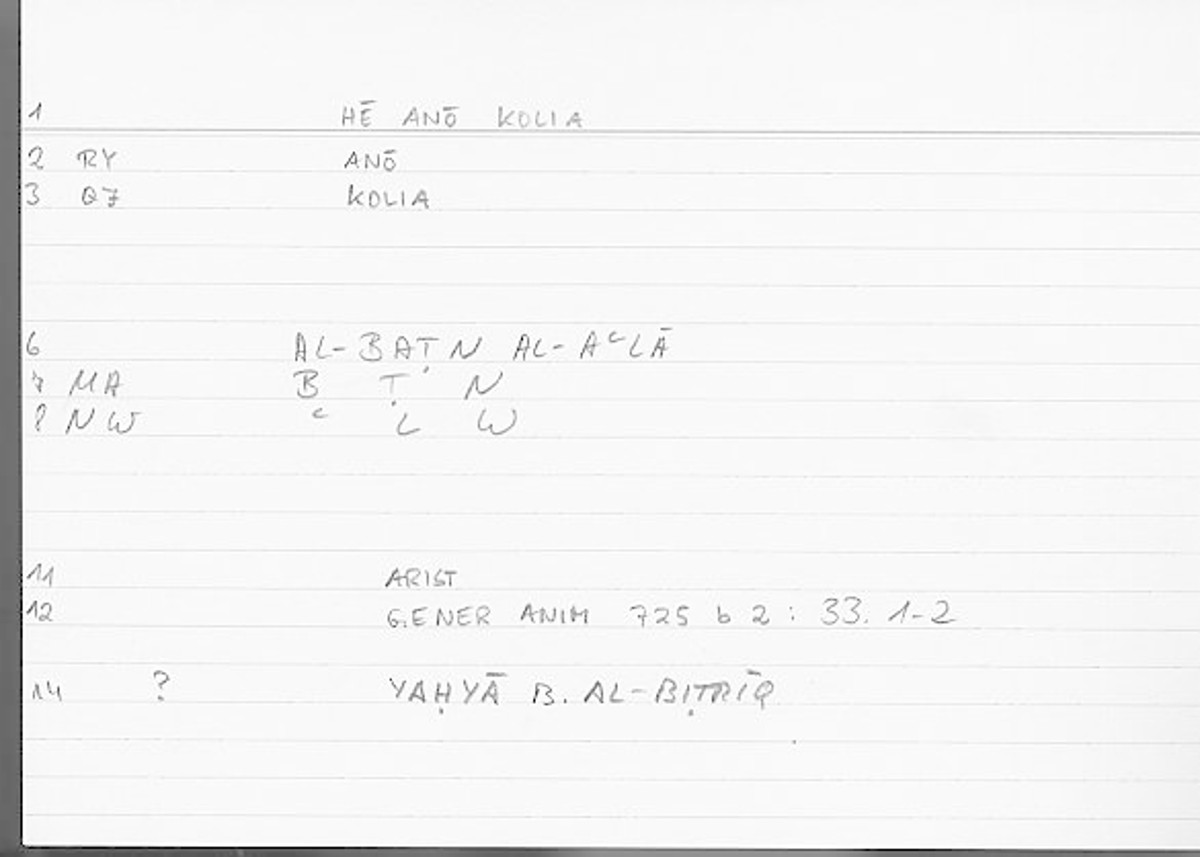 1 HĒ ANŌ KOLIA
2 RY ANŌ
3 QZ KOLIA
6 AL-BAṬN AL-AʿLĀ
7 MA B Ṭ N
8 NW ʿ L W
11 ARIST
12 GENER ANIM 725 b 2 : 33. 1-2
14 ? YAḤYĀ B. AL-BIṬRĪQ